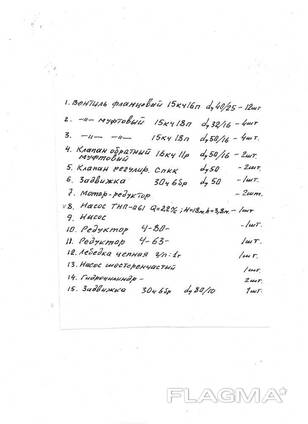 1. Вентиль фланцовый 15кч16п dу 40/25 - 12шт
2. -"- муфтовый 15кч18п dу 32/16 - 4шт
3. -"- -"- 15кч18п dу 50/16 - 4шт
4. Клапан обратный 16кч11р dу 50/16 - 2шт.
муфтовый
5. Клапан регулир. Сппк dу 50 - 2шт.
6. Задвижка 30ч6бр dу 50 - 1шт.
7. Мотор-редуктор - 2шт.
8. Насос - 1шт
9. Насос - 1шт.
10. Редуктор 4-80- - 1шт.
11. Редуктор 4-63- 1шт.
12. Лебедка цепная г/п: 1т 1шт.
13. Насос шестеренчастый 1шт.
14. Гидроцилиндр - 2шт.
15. Задвижка 30ч6бр dу 80/10 1шт.
FLAGMA